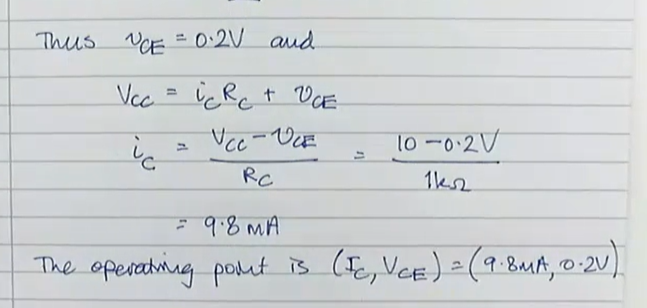 Thus v_CE = 0.2V and
V_CC = i_C R_C + v_CE
i_C = (V_CC - v_CE) / R_C = (10 - 0.2V) / 1kΩ
= 9.8 mA
The operating point is (I_C, V_CE) = (9.8mA, 0.2V)